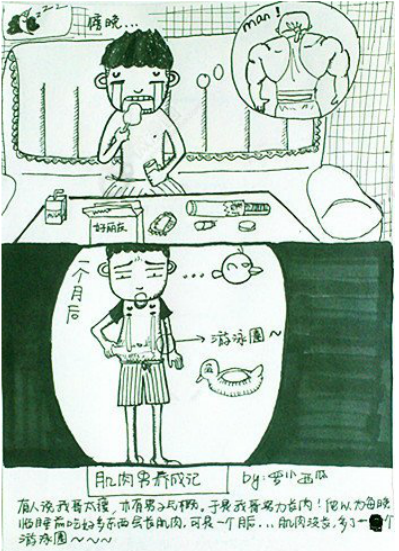 zzz
傍晚...
man!
好丽友
一个月后
...
→游泳圈～
肌肉男养成记
by:罗小西瓜
有人说我哥太瘦,没有男子气概。于是我哥努力长肉!他以为每晚
临睡前吃好多东西会长肌肉,可是一个月后...肌肉没长,多了一个
游泳圈～～～